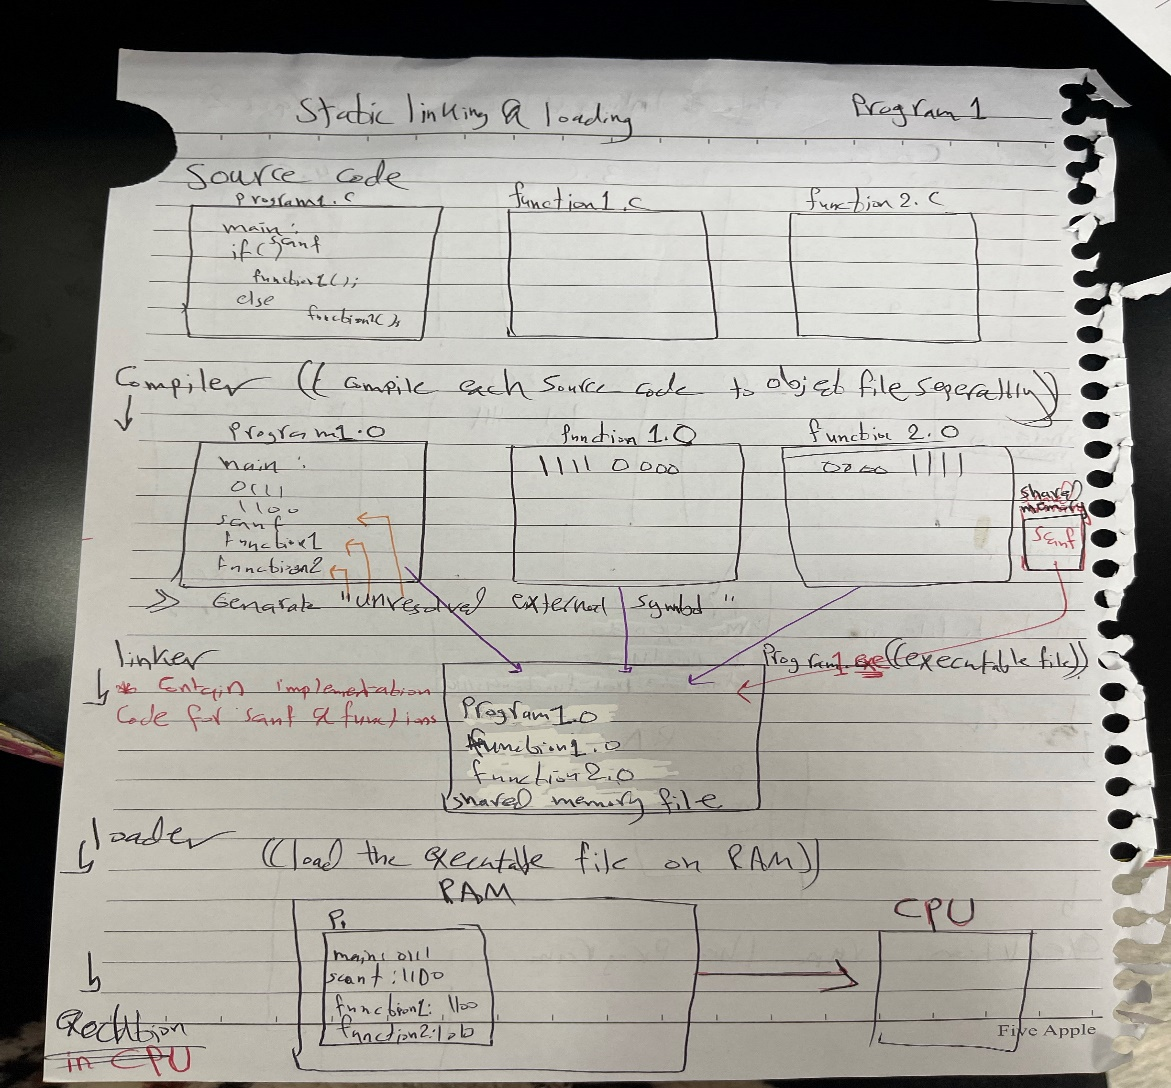 Static linking & loading
Program 1
Source code
Program1.c
main:
if()scanf
function1();
else
function2();
function1.c
function2.c
Compiler ((compile each source code to object file seperatlly))
Program1.o
main:
0111
1100
scanf
function1
function2
function 1.0
1111 0000
function 2.0
0000 1111
shared
memory
scanf
>> Genarate "unresolved external symbol"
linker
* Contain implementation
Code for scanf & functions
Program 1.exe((executable file))
Program1.o
function1.o
function2.o
shared memory file
loader
((load the executable file on RAM))
RAM
P1
main: 0111
scanf: 1100
function1: 1100
CPU
in CPU
Five Apple